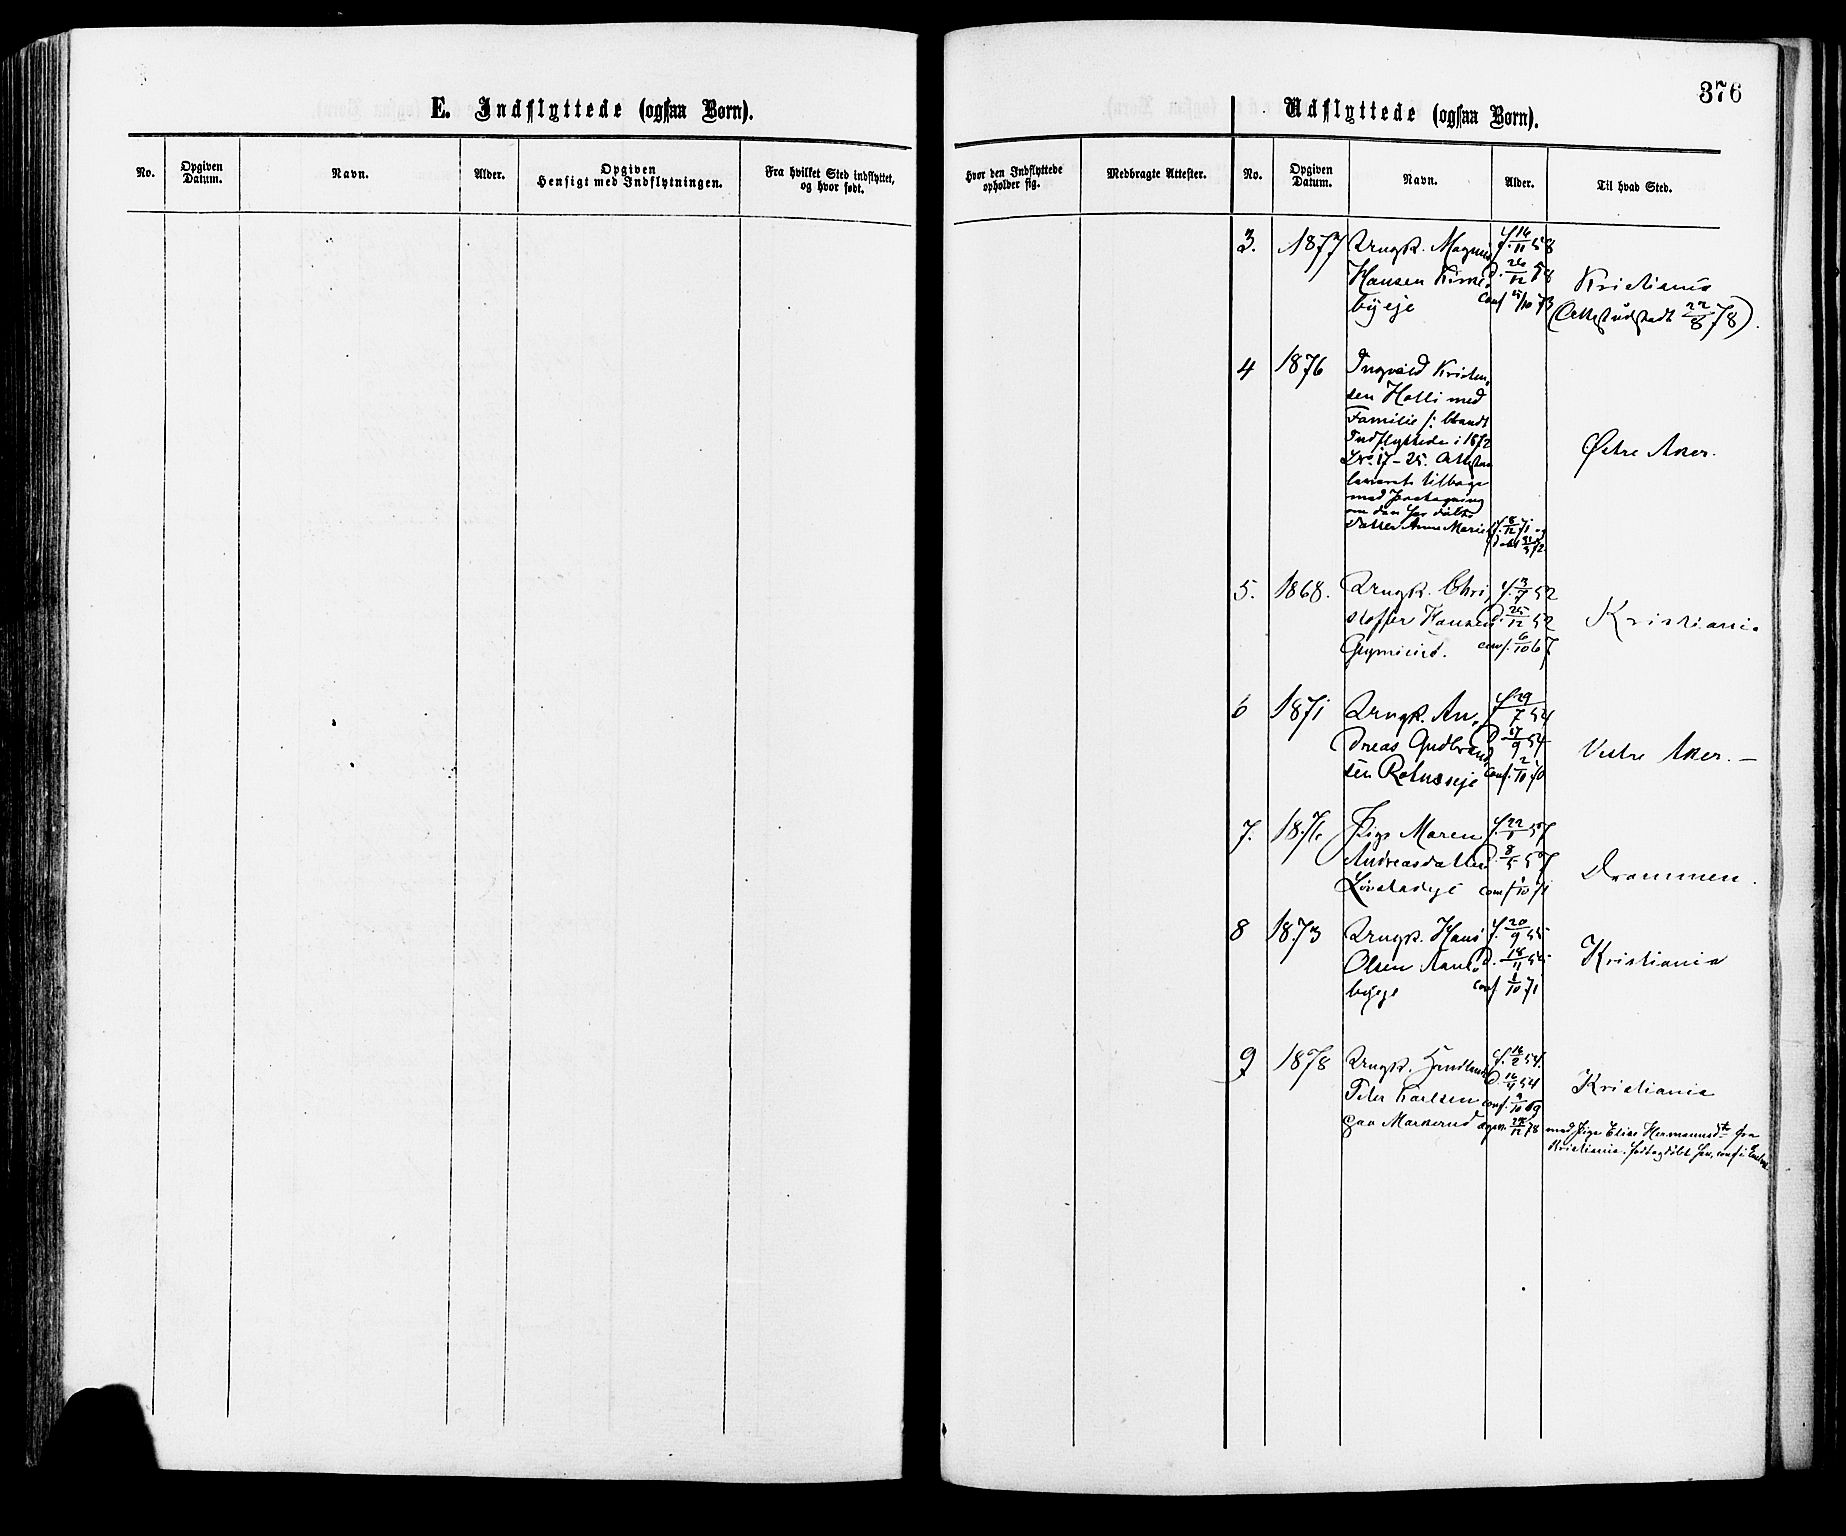 E. Indflyttede (ogsaa Børn).
No.
Opgiven
Datum.
Navn.
Alder.
Opgiven
Hensigt med Indflytningen.
Fra hvilket Sted indflyttet,
og hvor født.
376
Udflyttede (ogsaa Børn).
Hvor den Indflyttede
opholder sig.
Medbragte Attester.
No.
Opgiven
Datum.
Navn.
Alder.
Til hvad Sted.
3. 1877 Ungk. Magnus f. 16/11 58
Hansen d. 26/12 58 Kristiania
byeje conf. 5/10 73 (Attest udstedt 22/8 78).
4 1876 Ingvald Kristen-
sen Holli med
Familie /: blandt
Indflyttede i 1872
No. 17-25. Attesten
leveret tilbage
med Paategning
om den her døbte
Datter Anne Marie f. 8/12 71 og
døbt 31/3 72
Østre Aker.
5. 1868. Ungk. Chri- f. 3/9 52
stoffer Hansen d. 25/12 52 Kristiania
conf. 6/10 67
6 1871 Ungk. An- f. 29/7 54
dreas Gudbrand- d. 17/9 54 Vestre Aker. —
sen conf. 2/10 70
7. 1876 Pige Maren f. 22/1 57
Andreasdatter d. 8/5 57 Drammen.
conf. 1/10 71
8 1873 Ungk. Hans f. 20/9 55
Olsen d. 18/11 55 Kristiania
byeje conf. 1/10 71
9 1878 Ungk. Handlende f. 16/2 54.
Peter Karlsen d. 16/4 54 Kristiania
paa conf. 3/10 69
28/12 78 med Pige Elise Hermannsdtr fra
Kristiania. født og døbt her, conf. i